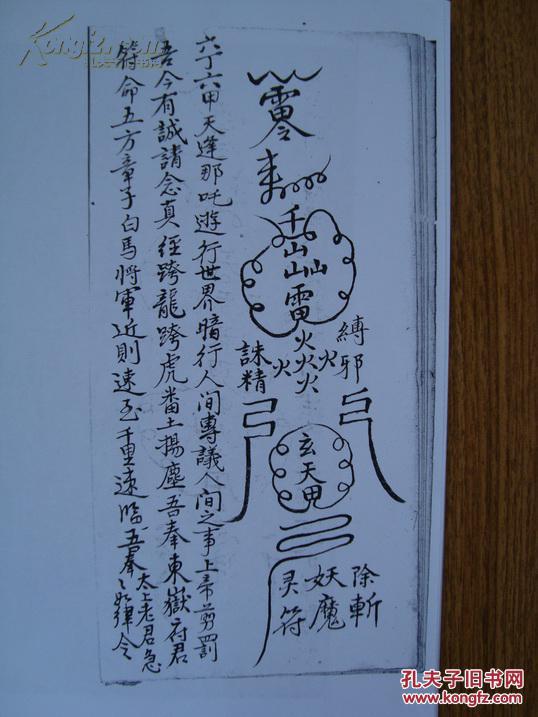 除斬
妖魔
灵符
縛邪
誅精
來
千
山
山山
雷
火
火火
火火
玄天
六丁六甲天逢那吒遊行世界暗行人间專議人间之事上帝前罰
吾今有誠請念真經跨龍跨虎番土揚塵吾奉東嶽府君
符命五方童子白馬將軍近則速至千里速临吾奉太上老君急々如律令
孔夫子旧书网
www.kongfz.com
Kongfz.com
孔夫子旧书网